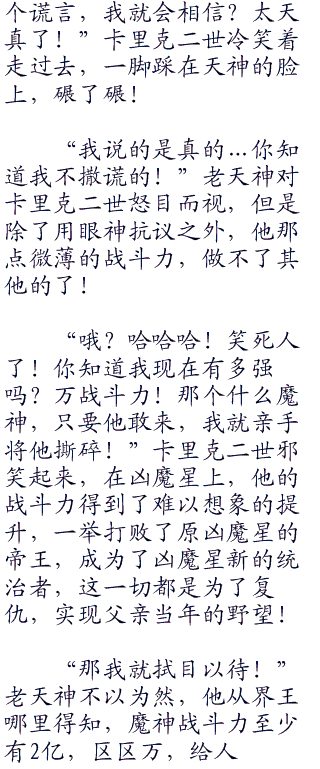 个谎言，我就会相信？太天
真了！”卡里克二世冷笑着
走过去，一脚踩在天神的脸
上，碾了碾！
“我说的是真的…你知
道我不撒谎的！”老天神对
卡里克二世怒目而视，但是
除了用眼神抗议之外，他那
点微薄的战斗力，做不了其
他的了！
“哦？哈哈哈！笑死人
了！你知道我现在有多强
吗？万战斗力！那个什么魔
神，只要他敢来，我就亲手
将他撕碎！”卡里克二世邪
笑起来，在凶魔星上，他的
战斗力得到了难以想象的提
升，一举打败了原凶魔星的
帝王，成为了凶魔星新的统
治者，这一切都是为了复
仇，实现父亲当年的野望！
“那我就拭目以待！”
老天神不以为然，他从界王
哪里得知，魔神战斗力至少
有2亿，区区万，给人